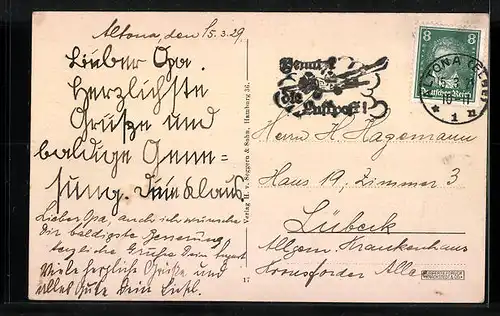 Altona, den 15.3.29.
Lieber Opa.
Herzlichste
Grüße und
baldige Genne-
sung. Dein Klaus
Lieber Opa, auch ich wünsche
Dir baldigste Besserung
herzliche Grüße Dein
Viele herzliche Grüße und
alles Gute Dein Liesl.
Verlag H. v. Seggern & Sohn, Hamburg 36.
17
Benutzt
die
Luftpost!
8 8
Deutsches Reich
ALTONA (ELBE)
* 1 n
Herrn H. Hagemann
Haus 19, Zimmer 3
Lübeck
Allgem. Krankenhaus
Kronsforder Alle